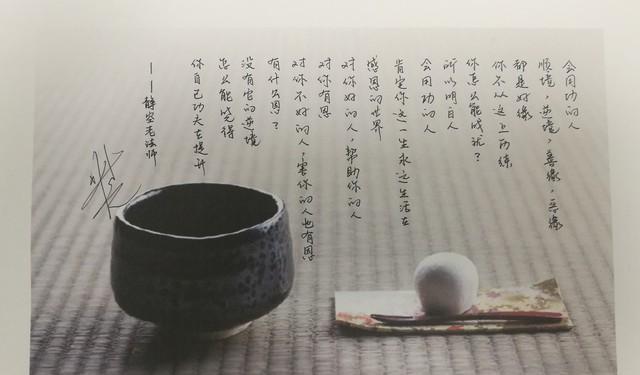 会用功的人
顺境，逆境，善缘，恶缘
都是好缘
你不从这上面练
你怎么能成就？
所以明白人
会用功的人
肯定你这一生永远生活在
感恩的世界
对你好的人，帮助你的人
对你有恩
对你不好的人，害你的人也有恩
有什么恩？
没有它的逆境
怎么能觉得
你自己功夫在提升
——静空老法师